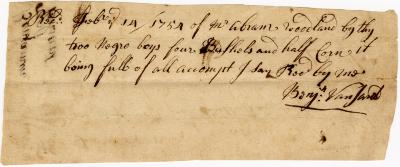 Rec:d Feb:ry 14 / 1754 of Mr Abram Woodland by thy
two Negro boys four Bushels and half Corn it
being full of all accompt I say Recd by me
Benj:n Vansant